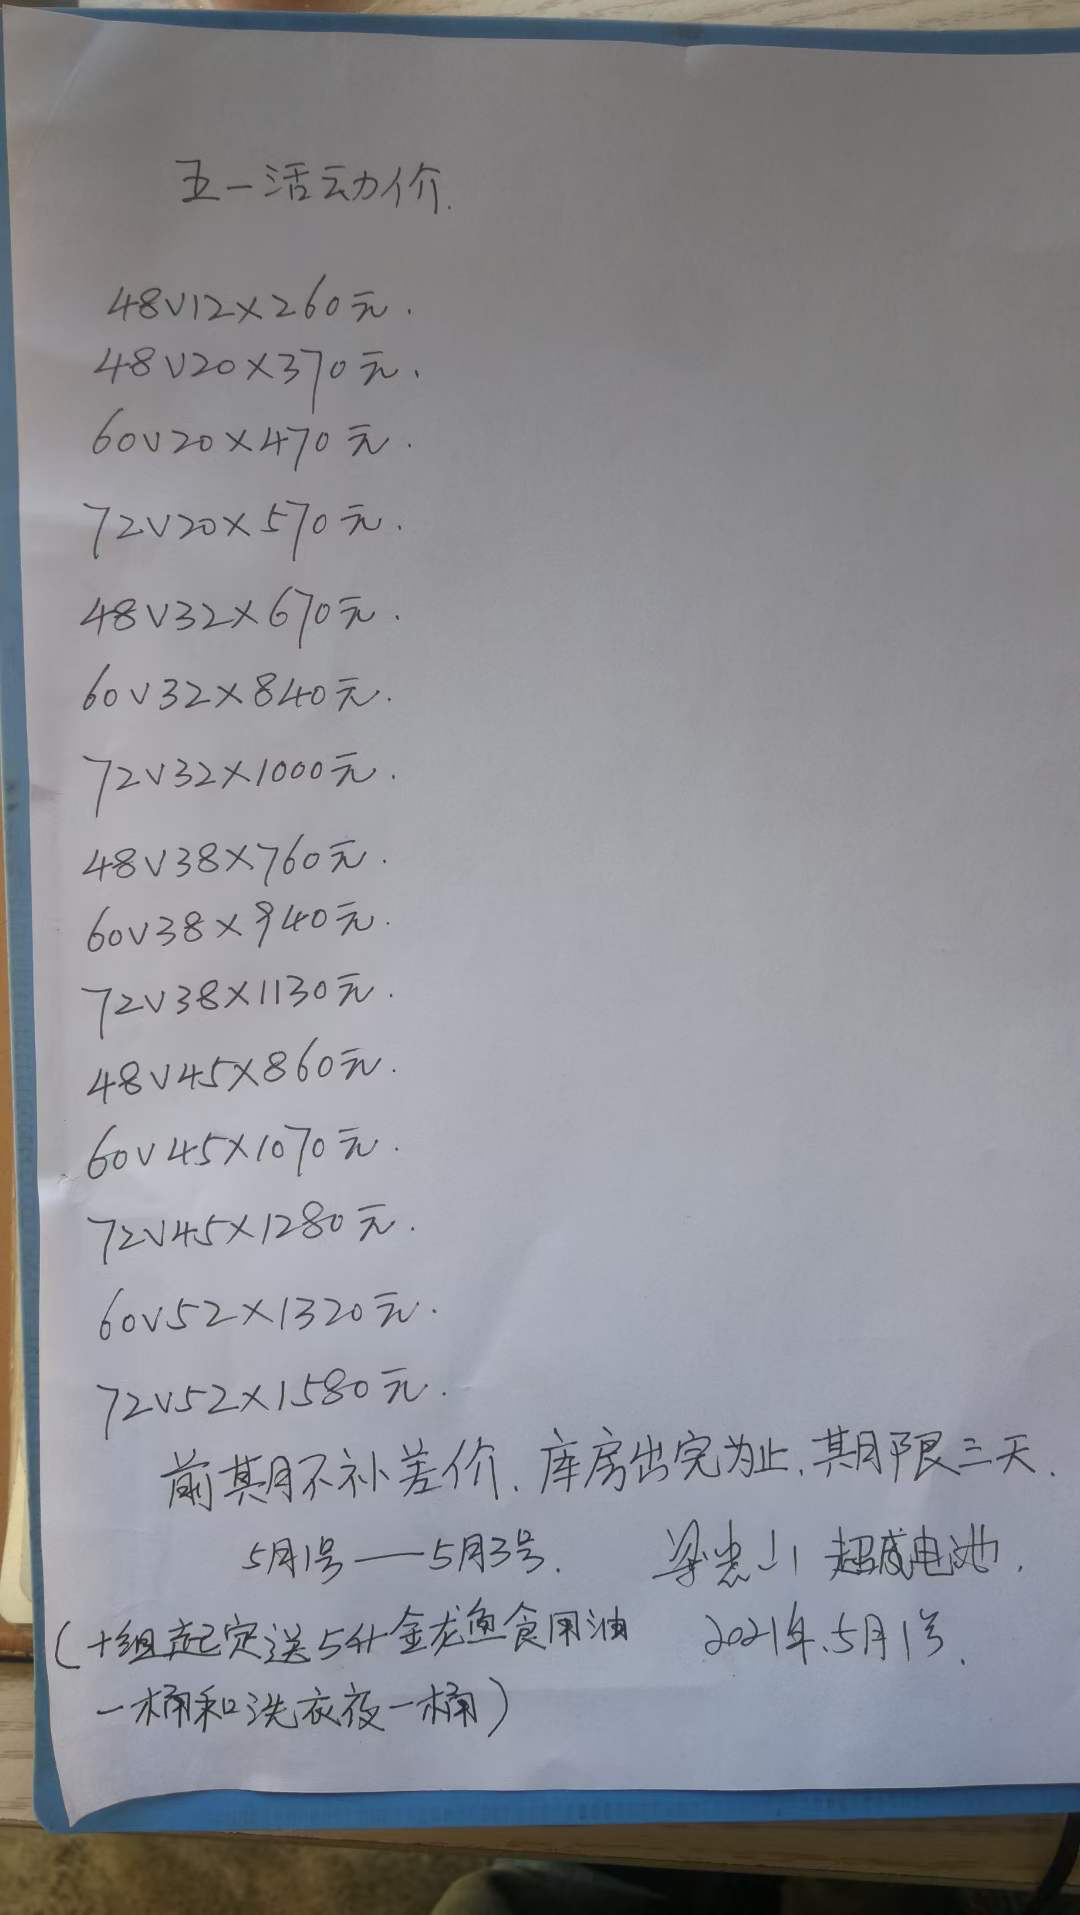 五一活动价.
48V12×260元.
48V20×370元.
60V20×470元.
72V20×570元.
48V32×670元.
60V32×840元.
72V32×1000元.
48V38×760元.
60V38×940元.
72V38×1130元.
48V45×860元.
60V45×1070元.
72V45×1280元.
60V52×1320元.
72V52×1580元.
前期不补差价.库房出完为止,期限三天.
5月1号——5月3号.
超威电池.
(十组起定送5升金龙鱼食用油
2021年.5月1号.
一桶和洗衣夜一桶)